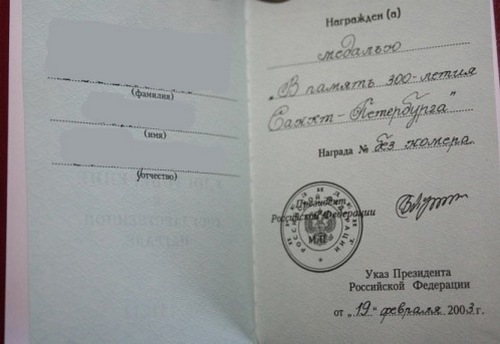 (фамилия)
(имя)
(отчество)
Награжден (а)
медалью
„В память 300-летия
Санкт-Петербурга"
Награда № без номера
Президент
Российской Федерации
М.П.
Указ Президента
Российской Федерации
от „19" февраля 2003 г.